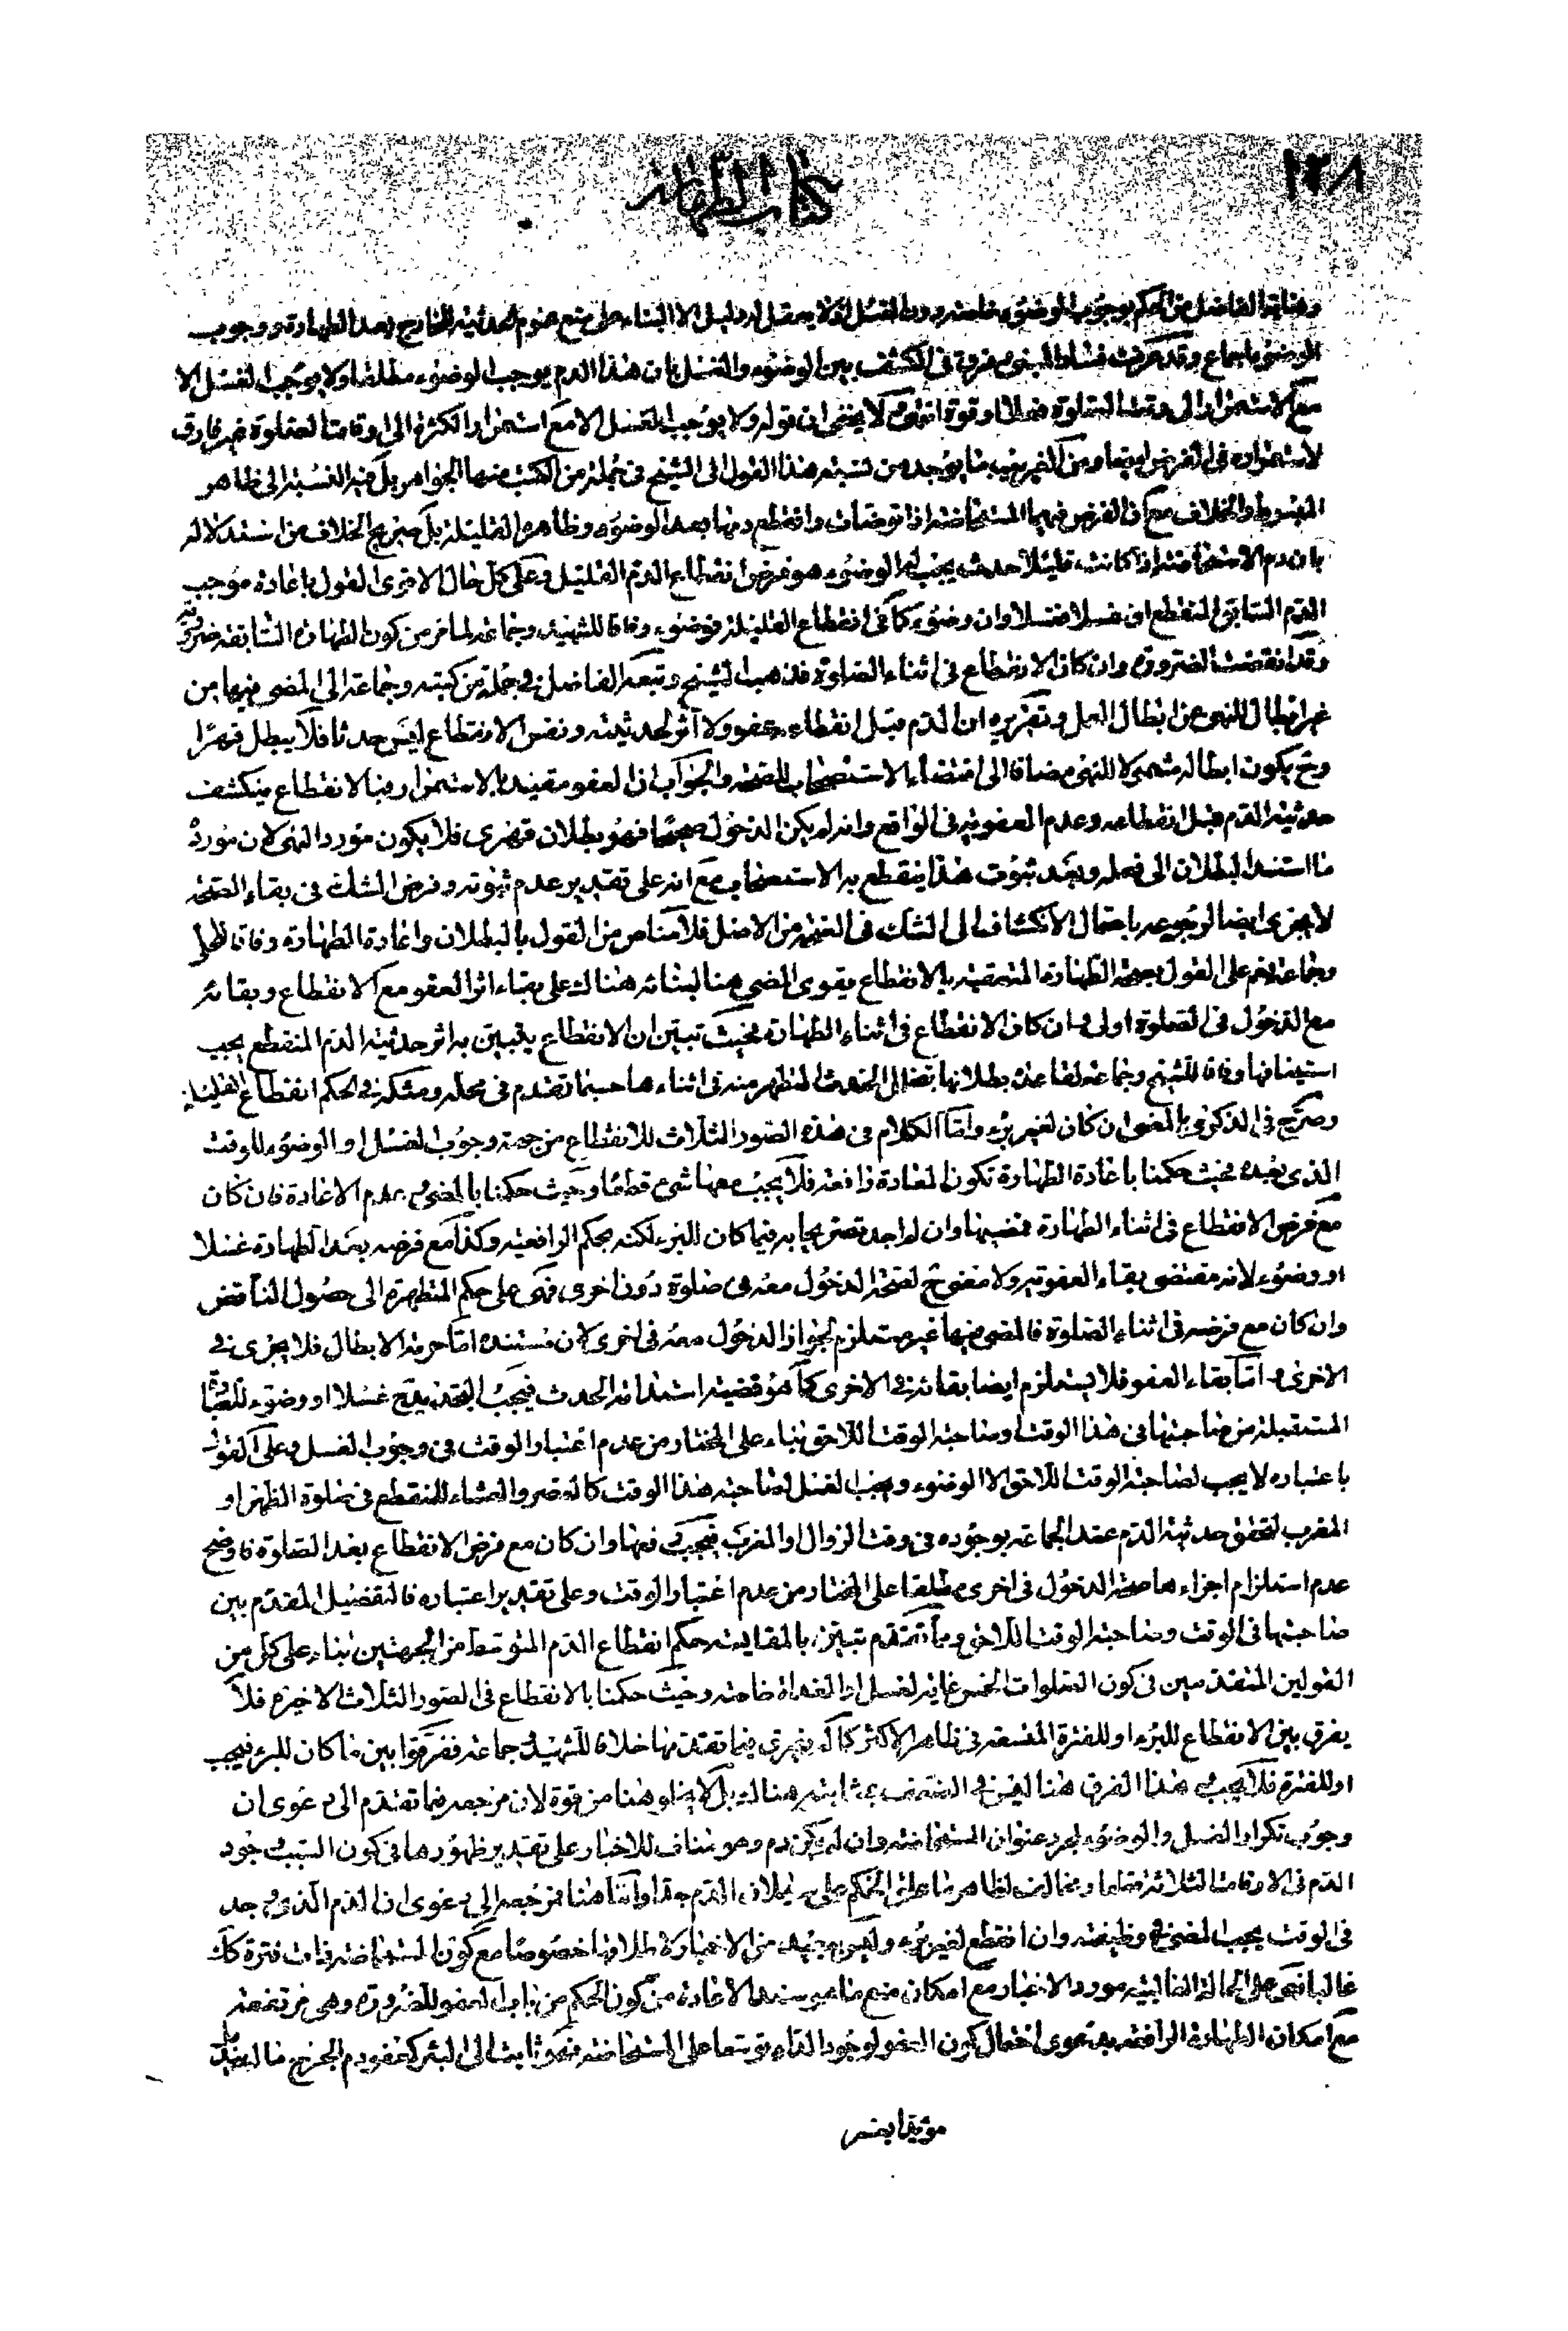 ١٢٨
كتاب الطهارة
الفاضل من الحكم بوجوب الوضوء خاصة دون الغسل فلا يعقل له دليل الا البناء على منع عموم حدثية الخارج بعد الطهارة ووجوب
الوضوء باجماع وقد عرفت فساد المبنى وفرق في الكشف بين الوضوء والغسل بان هذا الدم يوجب الوضوء مطلقا ولا يوجب الغسل الا
مع الاستمرار الى وقت الصلوة قوة انتهى كلا يخفى ان قوله ولا يوجب الغسل الا مع استمرار الكثرة الى اوقات الصلوة غير فارق
لاستمراره في الفرض ايضا ومن الغريب ما يوجد من نسبة هذا القول الى الشيخ في جملة من الكتب منها الجواهر بل فيه النسبة الى ظاهر
المبسوط والخلاف مع ان الفرض فيهما المستحاضة اذا توضات وانقطع دمها بعد الوضوء وظاهره القليلة بل صريح الخلاف من استدلاله
بان دم الاستحاضة اذا كانت قليلا حدث يجب له الوضوء هو فرض انقطاع الدم القليل وعلى كل حال الاقوى القول باعادة موجب
الدم السابق المنقطع ان غسلا فغسلا وان وضوء كما في انقطاع القليلة فوضوء وفاقا للشهيد وجماعة لما مر من كون الطهارة السابقة ضرورية
وقد انقضت الضرورة وان كان الانقطاع في اثناء الصلوة فذهب الشيخ وتبعه الفاضل في جملة من كتبه وجماعة الى المضى فيها من
غير ابطال للنهى عن ابطال العمل وتقريره ان الدم قبل انقطاعه عفو ولا اثر لحدثيته ونفس الانقطاع ليس حدثا فلا يبطل قهرا
وح يكون ابطاله مشمولا للنهى مضافا الى اقتضاء الاستصحاب للصحة والجواب ان العفو مقيد بالاستمرار وبالانقطاع ينكشف
حدثية الدم قبل انقطاعه وعدم العفو فيه في الواقع وانه لم يكن الدخول صحيحا فهو بطلان قهرى فلا يكون مورد النهى لان مورده
ما استند البطلان الى فعله وبعد ثبوت هذا ينقطع به الاستصحاب مع انه على تقدير عدم ثبوته وفرض الشك في بقاء الصحة
لا يجرى ايضا لرجوعه باحتمال الانكشاف الى الشك في الصحة من الاصل فلا مناص من القول بالبطلان واعادة الطهارة وفاقا
وجماعة نعم على القول بصحة الطهارة المتعقبة بالانقطاع يقوى المضى هنا لبنائه هناك على بقاء اثر العفو مع الانقطاع وبقائه
مع الدخول في الصلوة اولى وان كان الانقطاع في اثناء الطهارة فحيث تبين ان الانقطاع يتبين به اثر حدثية الدم المنقطع يجب
استينافها وفاقا للشيخ وجماعة لقاعدة بطلانها بتخلل الحدث المتطهر منه في اثناءها حسبما تقدم في محله ومثله في الحكم انقطاع القليلة
وصرح في الذكرى بالعفو ان كان لغير برء واما الكلام في هذه الصور الثلاث للانقطاع من جهة وجوب الغسل او الوضوء للوقت
الذى بعده فحيث حكمنا باعادة الطهارة تكون المعادة رافعة فلا يجب معها شئ قطعا وحيث حكمنا بالمضى وعدم الاعادة فان كان
مع فرض الانقطاع في اثناء الطهارة فمقتضيها وان لم اجد تصريحا به فيما كان للبرء لكنه بحكم الرافعية وكذا مع فرضه بعد الطهارة غسلا
او وضوء لانه مقتضى بقاء العفو فيه ولا معنى ح لصحة الدخول معه في صلوة دون اخرى فهى على حكم المتطهرة الى حصول الناقض
وان كان مع فرضه في اثناء الصلوة فالمضى فيها غير مستلزم لجواز الدخول معه في اخرى لان مستنده اما حرمة الابطال فلا يجرى في
الاخرى واما بقاء العفو فلا يستلزم ايضا بقائه في الاخرى كما هو قضية استدامة الحدث فيجب التجديد ح غسلا او وضوء للغايات
المستقبلة من صاحبتها في هذا الوقت او صاحبة الوقت اللاحق بناء على المختار من عدم اعتبار الوقت في وجوب الغسل وعلى القول
باعتباره لا يجب لصاحبة الوقت اللاحق الا الوضوء ويجب الغسل لصاحبة هذا الوقت كالعصر والعشاء للنقطع في صلوة الظهر او
المغرب لتحقق حدثية الدم عند الجماعة بوجوده في وقت الزوال او المغرب فيجب رفعها وان كان مع فرض الانقطاع بعد الصلوة فاوضح
عدم استلزام اجزاءها صحة الدخول في اخرى مطلقا على المختار من عدم اعتبار الوقت وعلى تقدير اعتباره فالتفصيل المقدم بين
صاحبتها في الوقت وصاحبة الوقت اللاحق ومما تقدم تبين بالمقايسة حكم انقطاع الدم المتوسط من الجهتين بناء على كل من
القولين المتقدمين في كون الصلوات الخمس غاية لغسله او الغداة خاصة وحيث حكمنا بالانقطاع في الصور الثلاث الاخيرة فلا
يفرق بين الانقطاع للبرء او للفترة المتسعة في ظاهر الاكثر كما لم يفرق فيما تقدمها خلافا للشهيد وجماعة ففرقوا بين ما كان للبرء فيجب
او للفترة فلا يجب وهذا الفرق هنا ليس في الضعف بمثابته هناك بل لا يخلو هنا من قوة لان مرجعه فيما تقدم الى دعوى ان
وجوب تكرار الغسل والوضوء لمجرد عنوان المستحاضة وان لم يكن دم وهو مناف للاخبار على تقدير ظهورها في كون السبب وجود
الدم في الاوقات الثلاثة ومخالف لظاهر ما علق الحكم على سيلان الدم جدا واما هنا فمرجعه الى دعوى ان الدم الذى وجد
في الوقت يجب المضى في وظيفته وان انقطع لغير برء وليس ببعيد من الاخبار لاطلاقها خصوصا مع كون المستحاضة ذات فترة كذلك
غالبا فهى على الحالة الغالبية مورد الاخبار مع امكان منع ما هو سند الاعادة من كون الحكم من باب العفو للضرورة وهى مرتفعة
مع امكان الطهارة الرافعة بدعوى احتمال كون العفو لوجود الداء توسعا على المستحاضة فهو ثابت الى البرء كعفو دم الجرح ما لم